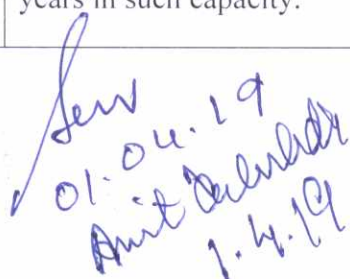 years in such capacity.
01.04.19
Amit
1.4.19